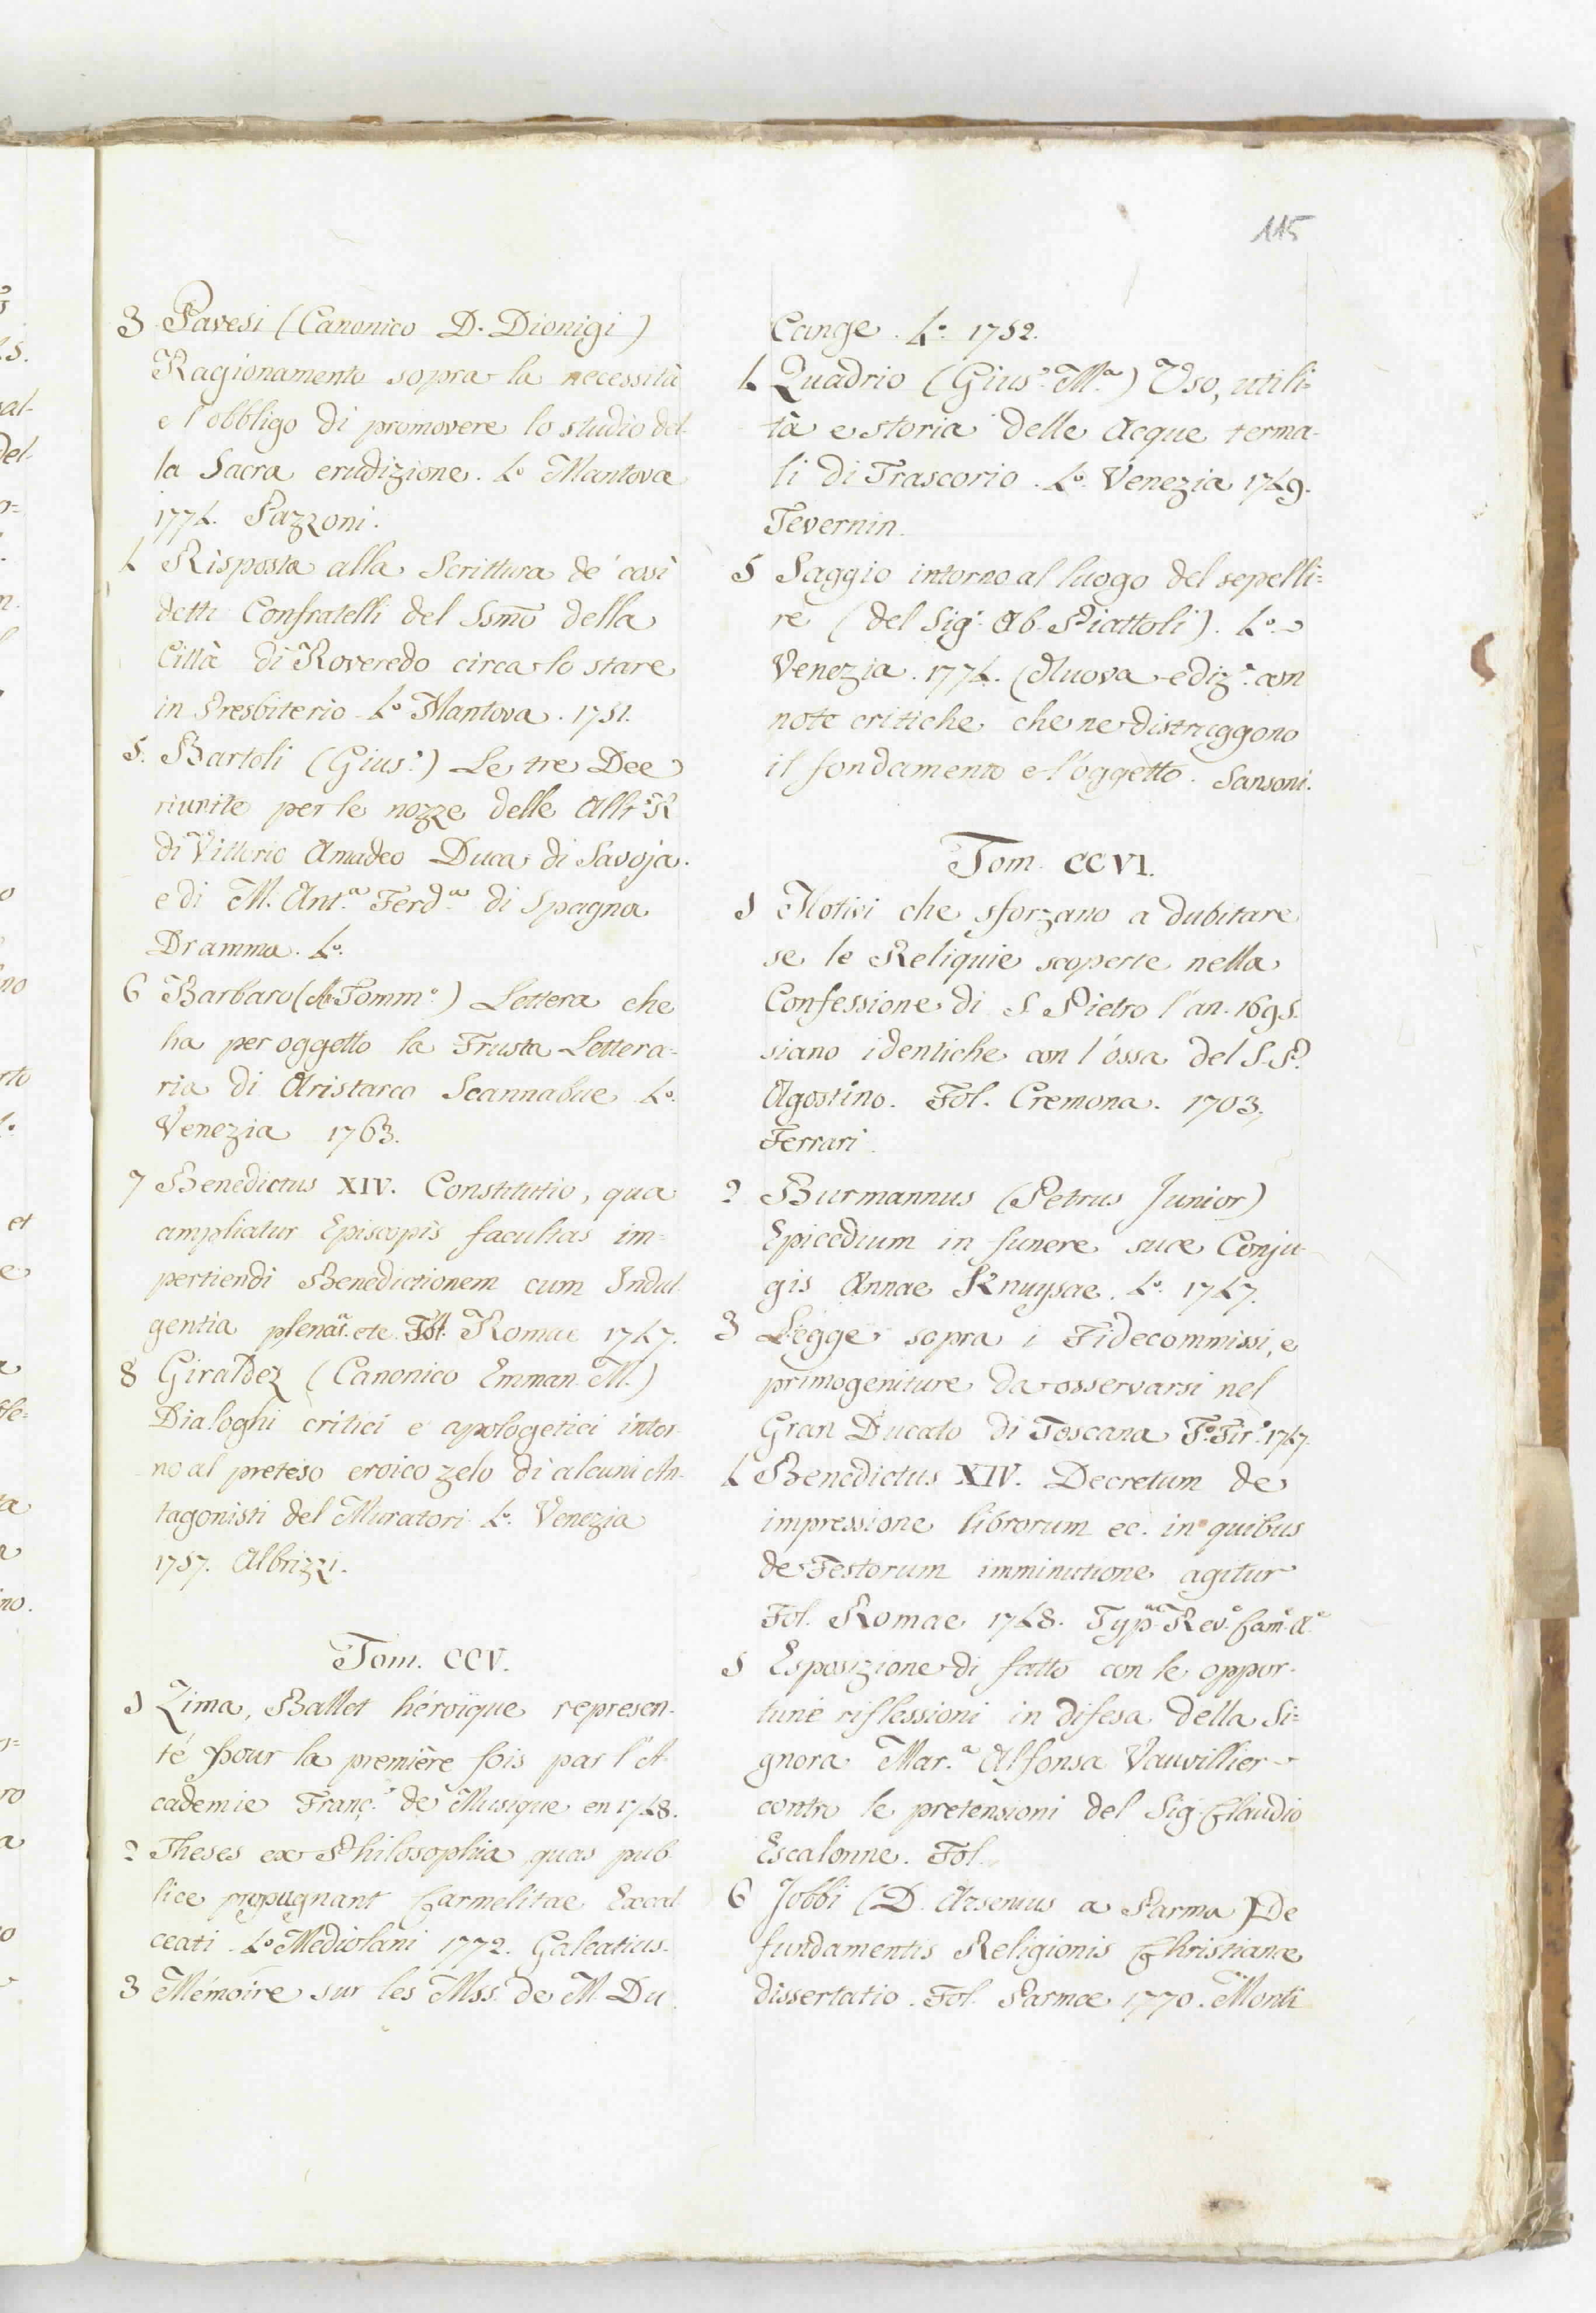 115
3 Pavesi (Canonico D. Dionigi)
Ragionamento sopra la necessità
e l'obbligo di promovere lo studio del-
la Sacra erudizione. 4.º Mantova
1774. Pazzoni.
4 Risposta alla Scrittura de' così
detti Confratelli del Ssmo della
Città di Roveredo circa lo stare
in Presbiterio 4.º Mantova. 1751.
5. Bartoli (Gius.e) Le tre Dee
riunite per le nozze delle Alt.e R
di Vittorio Amadeo Duca di Savoja.
e di M. Ant.a Ferd.a di Spagna
Dramma. 4.º
6 Barbaro (A. Tomm.º) Lettera che
ha per oggetto la Frusta Lettera=
ria di Aristarco Scannabue 4.º
Venezia 1763.
7 Benedictus XIV. Constitutio, qua
ampliatur Episcopis facultas im=
pertiendi Benedictionem cum Indul
gentia plenar. etc. Fol. Romae 1747.
8 Giraldez (Canonico Emman. M.)
Dialoghi critici e apologetici intor
no al preteso eroico zelo di alcuni An-
tagonisti del Muratori 4.º Venezia
1757. Albrizzi.
Tom. CCV.
1 Zima, Ballet héroïque represen-
té pour la première fois par l'A-
cademie Franç.e de Musique en 1748.
2 Theses ex Philosophia quas pub
lice propugnant Carmelitae Excal
ceati 4.º Mediolani 1772. Galeatius.
3 Mémoire sur les Mss. de M. Du
Cange. 4.º 1752.
4 Quadrio (Gius.e M.a) Uso, utili=
tà e storia delle Acque terma-
li di Trascorio. 4.º Venezia 1749.
Tevernin.
5 Saggio intorno al luogo del sepelli=
re (del Sig.r Ab. Piattoli). 4.º
Venezia. 1774. (Nuova ediz.e con
note critiche che ne distruggono
il fondamento e l'oggetto. Sansoni.
Tom. CCVI.
1 Motivi che sforzano a dubitare
se le Reliquie scoperte nella
Confessione di S. Pietro l'an. 1695.
siano identiche con l'ossa del S. P.
Agostino. Fol. Cremona. 1703.
Ferrari.
2 Burmannus (Petrus Junior)
Epicedium in funere suae Conju-
gis Annae Knuysae. 4.º 1747.
3 Legge sopra i Fidecommissi, e
primogeniture da osservarsi nel
Gran Ducato di Toscana F.º Fir.e 1747.
4 Benedictus XIV. Decretum de
impressione librorum ec. in quibus
de Festorum imminutione agitur
Fol. Romae 1748. Typ. Rev. Cam. A.
5 Esposizione di fatto con le oppor-
tune riflessioni in difesa della Si=
gnora Mar.a Alfonsa Vauvillier
contro le pretensioni del Sig. Claudio
Escalonne. Fol.
6 Jobbi (D. Arsenius a Parma) De
fundamentis Religionis Christianæ
dissertatio. Fol. Parmæ 1770. Monti